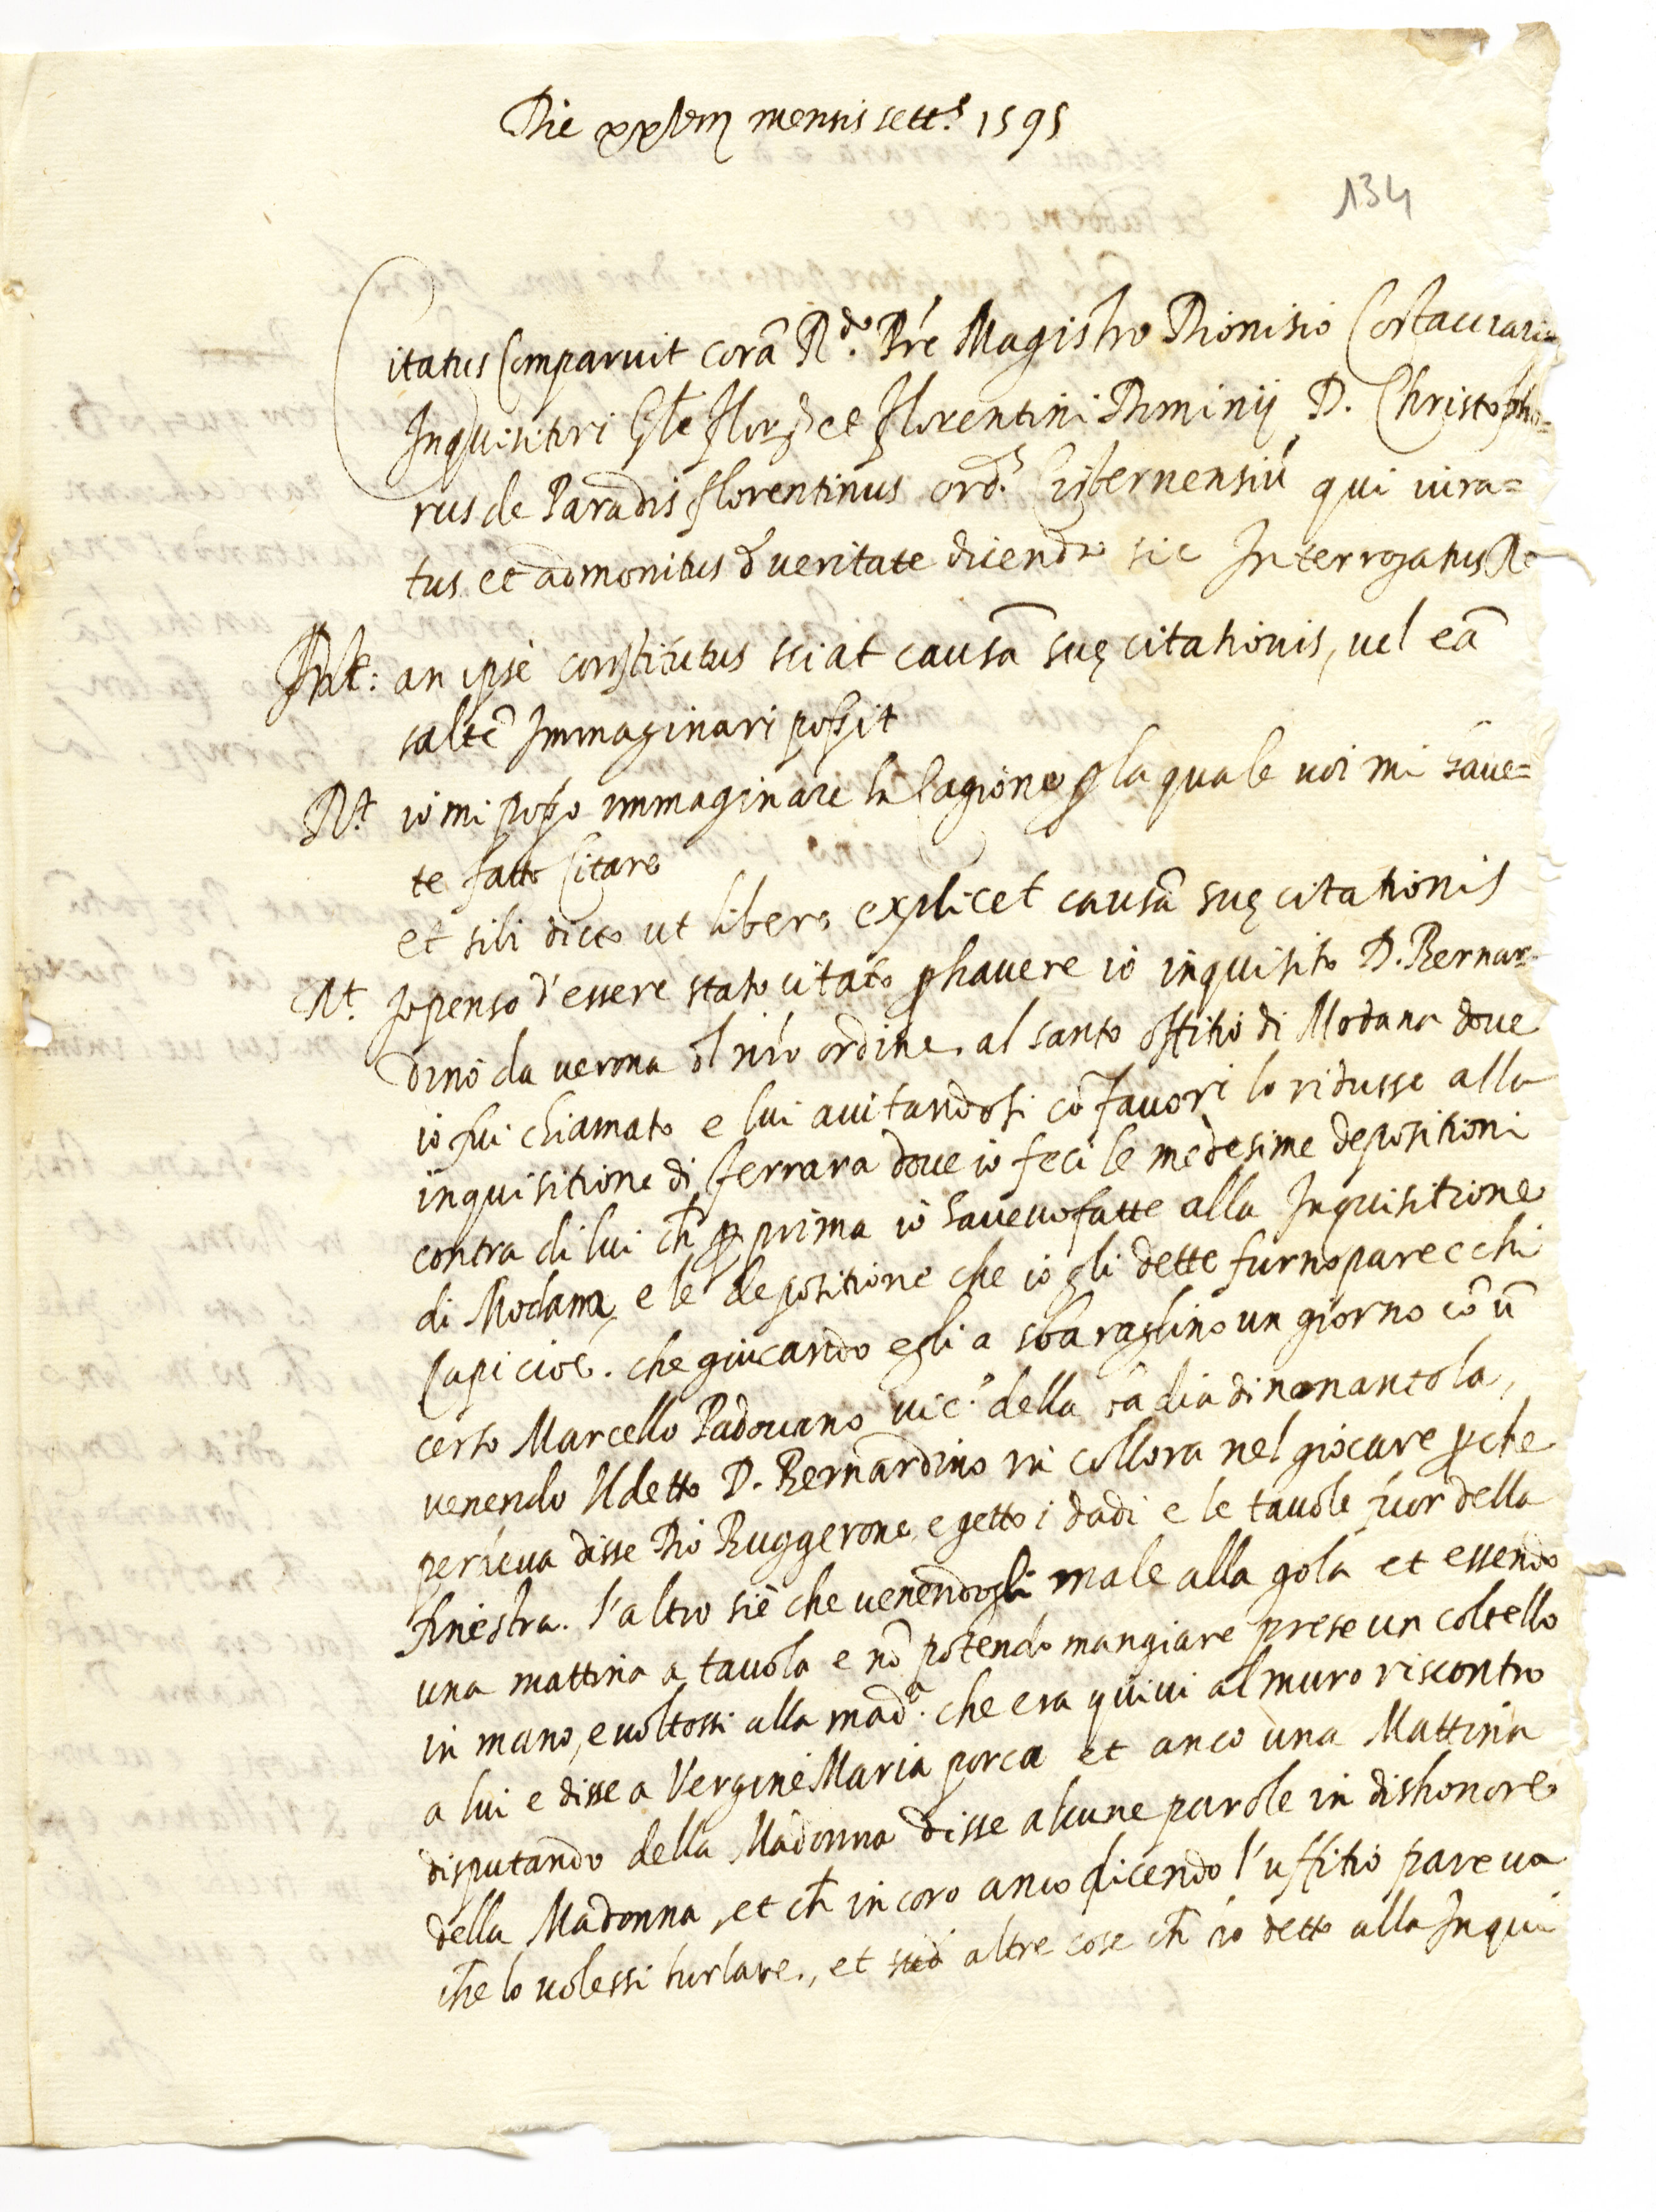 Die xxv mensis sett.s 1595
134
Citatus Comparuit corā R.do Prē Magistro Dionisio Costacciari=
Inquisitori Gn̄le Flor.æ et Florentini Dominij D. Christopho=
rus de Paradis florentinus ord.s Cisternensiū qui iura=
tus et admonitus d̄ veritate dicenda sic Interrogatus R.
Int: an ipse constitutus sciat causā suę citationis, vel eā
saltē Immaginari possit
R.t io mi posso immaginare la Cagione p̱ la quale voi mi have=
te fatto Citare
et sibi dicto ut libere explicet causā suę citationis
R.t Io penso d'essere stato citato p̱ havere io inquisito D. Bernar=
dino da verona d̄l nr̄o ordine, al santo offitio di Modana dove
io fui chiamato e lui aiutandosi cō favori lo ridusse alla
inquisitione di ferrara dove io feci le medesime depositioni
contra di lui ch̄ p̱ prima io havevo fatte alla Inquisitione
di Modana, e le depositione che io gli dette furno parecchi
Capi cioè. che giucando egli a sbaraglino un giorno cō ū
certo Marcello Padovano vic.o della badia di nonantola,
venendo Il detto D. Bernardino in collora nel giocare p̱che
perdeva disse Dio Ruggerone, e getto i dadi e le tavole fuor della
finestra. l'altro si è che venendogli male alla gola et essendo
una mattina a tavola e nō potendo mangiare prese un coltello
in mano, e voltossi alla mad.a che era quivi al muro riscontro
a lui e disse a Vergine Maria porca et anco una Mattina
disputando della Madonna disse alcune parole in dishonore
della Madonna, et ch̄ in coro anco dicendo l'uffitio pareva
che lo volessi burlare, et altre cose ch̄ io detto alla Inqui